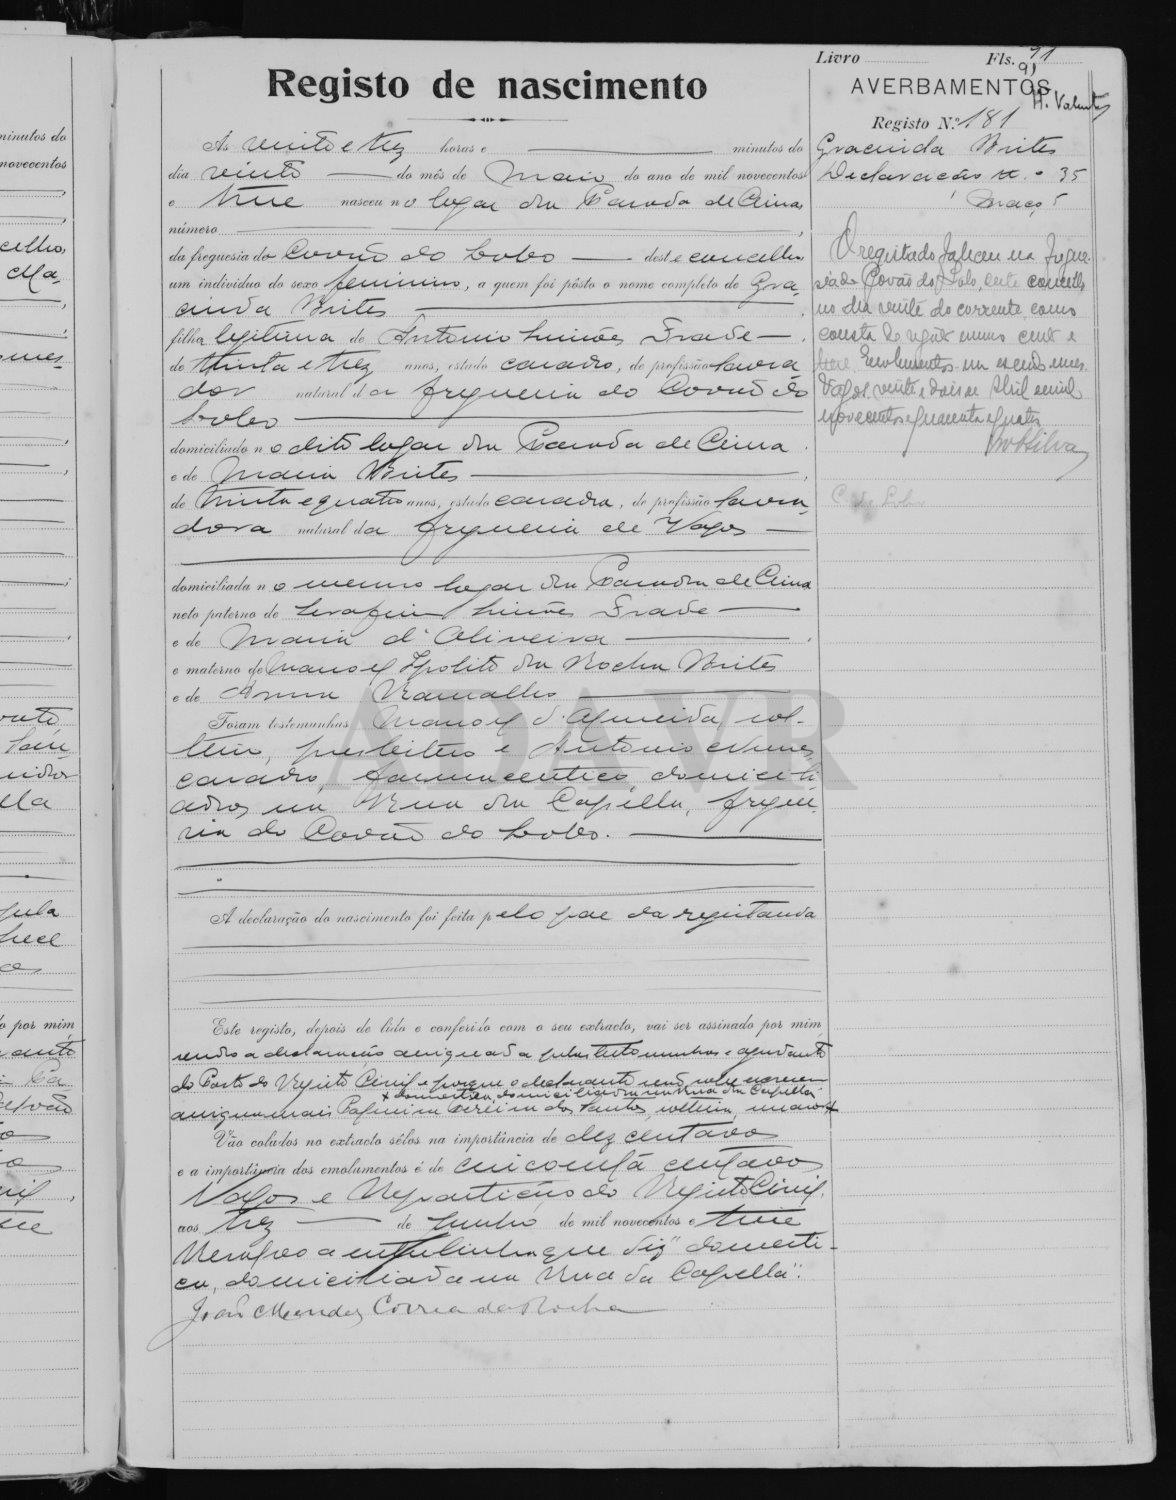 Livro Fls. 91
91
H. Valente
Registo de nascimento
AVERBAMENTOS
Registo N.º 181
Gracinda Brites
Declaração n.º 35
Maço 5
Às vinte e trez horas e minutos do
dia vinte do mês de Maio do ano de mil novecentos
e treze nasceu no logar da Parada de Cima
número
da freguesia do Covão do Lobo deste concelho
um individuo do sexo feminino, a quem foi pôsto o nome completo de Gra-
cinda Brites
filha legitima de Antonio Simões Frade
de trinta e trez anos, estado casado, de profissão lavra
dor natural da freguesia do Covão do
Lobo
domiciliado no dito logar da Parada de Cima
e de Maria Brites
de trinta e quatro anos, estado casada, de profissão lavra-
dora natural da freguesia de Vagos
domiciliada no mesmo logar da Parada de Cima
neto paterno de Serafim Simões Frade
e de Maria d'Oliveira
e materno de Manoel Ipolito da Rocha Brites
e de Anna Ramalho
Foram testemunhas Manoel d'Almeida, sol-
teiro, presbitero e Antonio Nunes
casado, farmaceutico, domicili
ados na Rua da Capella, fregue-
sia do Covão do Lobo.
A declaração do nascimento foi feita pelo pae da registanda
Este registo, depois de lido e conferido com o seu extracto, vai ser assinado por mim
sendo a declaração assignada pelas testemunhas e ajudante
do Posto do Registo Civil e porque o declarante não sabe escrever
x domestica, domiciliada na Rua da Capella
assigna mais Vereira dos Santos, solteira, maior x
Vão colados no extracto sêlos na importância de dez centavos
e a importância dos emolumentos é de cincoenta centavos
Vagos e Repartição do Registo Civil,
aos trez de Junho de mil novecentos e treze
Resalvo a entrelinha que diz "domesti-
ca, domiciliada na Rua da Capella".
João Mendes Correia da Rocha
O registado faleceu na fregue-
sia do Covão do Lobo, deste concelho
no dia vinte do corrente, como
consta do registo numero cento e
treze Emolumentos um escudo
Vagos, vinte e dois de Abril de mil
novecentos e quarenta e quatro
Silva
C. do Lobo
ADAVR
minutos do
novecentos
celho,
por mim